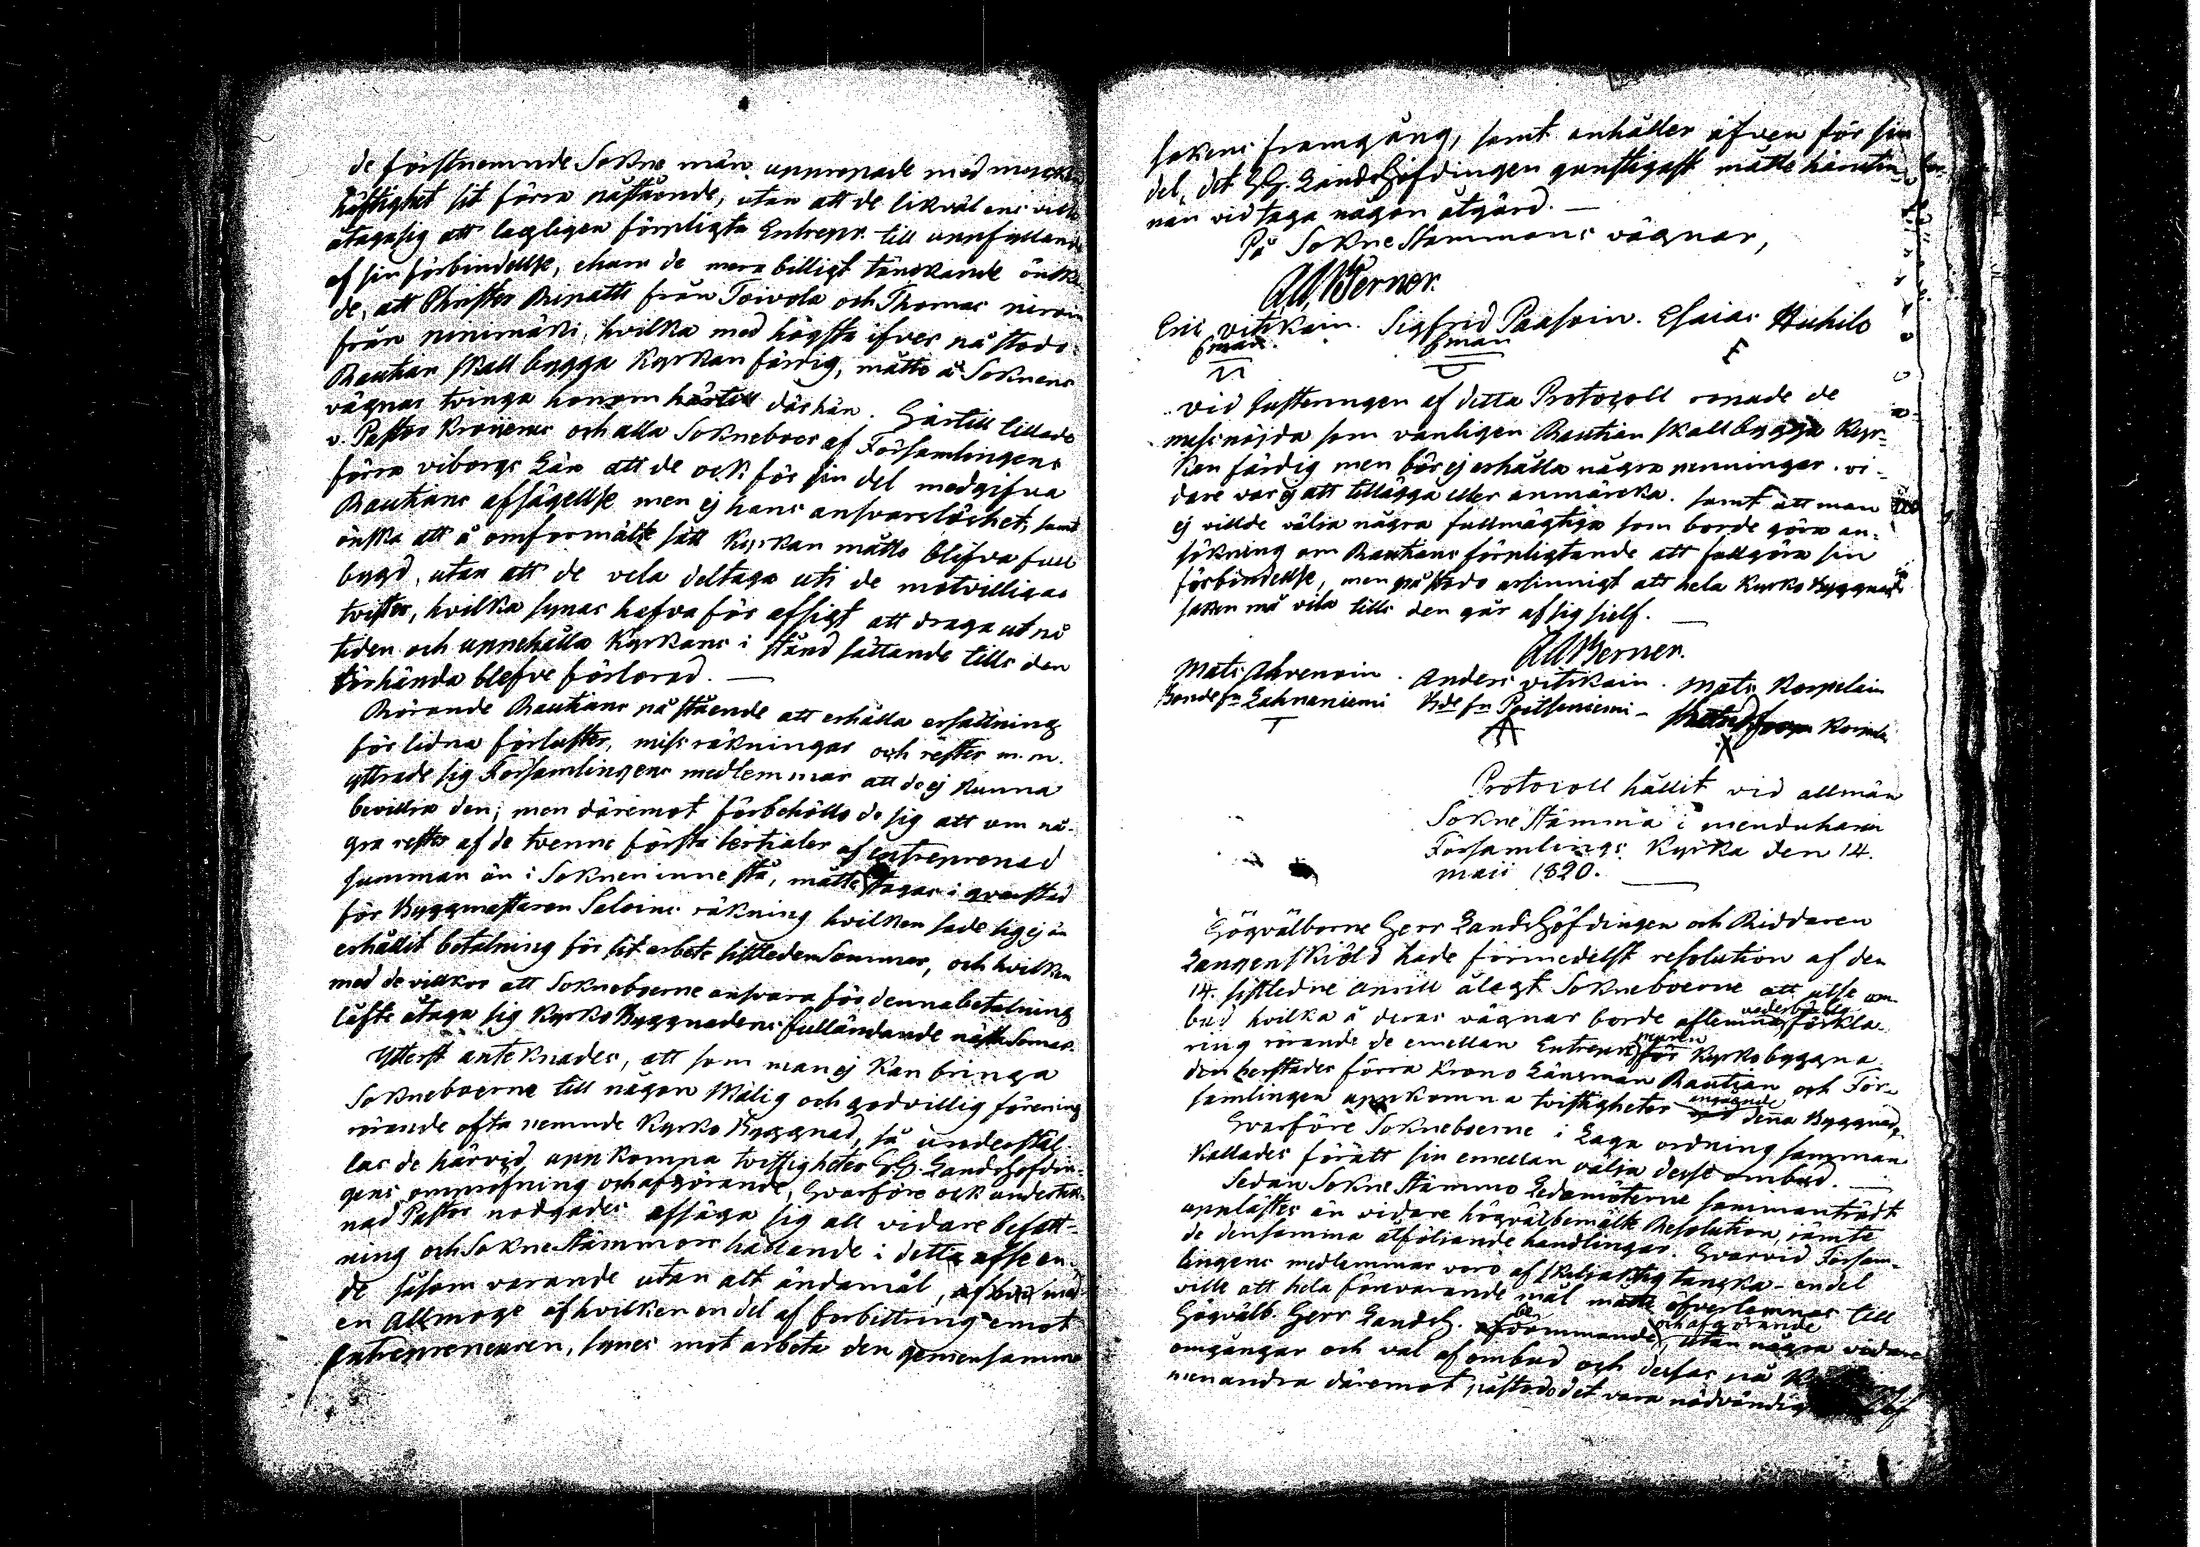 de förstnemnde Sokne män upprepade med mycken
häftighet sit förra påstående, utan att de likväl ens ville
åtaga sig att lagligen förpligta Entrepr. till uppfyllande
af sin förbindellse, ehuru de mera billigt tänckande önska-
de, att Christer Ripatti från Toivola och Thomas
från hvilka med högsta ifver påstodo
Rautian skall bygga Kyrkan färdig, måtte å Soknens
vägnar tvinga honom härtill därhän. Härtill tillade
v. Pastor Kronerus och alla Sokneboer af Församlingens
förra Viborgs Län att de ock för sin del medgifva
Rautians afsägellse men ej hans ansvarslöshet, samt
önska att å omformälte sätt Kyrkan måtte blifva full
bygd, utan att de vela deltaga uti de motvilligas
tvister, hvilka synas hafva för afsigt att draga ut på
tiden och uppehålla Kyrkans i stånd sättande tills den
törhända blefve förlorad. —
Rörande Rautians påstående att erhålla ersättning
för lidna förluster, missräkningar och rester m.m.
yttrade sig Församlingens medlemmar att de ej kunna
bevillja den; men däremot förbehöllo de sig att om nå-
gra rester af de tvenne första tertialer af entreprenad
summan än i Soknen inne stå, måtte tagas i qvarstad
för Byggmästaren Saloins räkning hvilken sade sig ej än
erhållit betalning för sit arbete sistleden Sommar, och hvilken
med de villkor att Sokneboerne ansvara för denna betalning
låfte åtaga sig KyrkoByggnadens fulländande nästa Somar.
Ytterst antecknades, att som man ej kan bringa
Sokneboerne till någon skälig och godvillig förening
rörande ofta nemnde Kyrko Byggnad, så underställ-
las de härvid uppkomna tvistigheter HH. Landshöfdin-
gens ompröfning och afgörande, hvarföre ock underteck-
nad Pastor nödgades afsäga sig all vidare befatt-
ning och Sokne Stämmors hållande i detta afseen-
de såsom varande utan allt ändamål, med
en Allmoge af hvilken en del af förbittring emot
Entrepreneuren, synes mot arbeta den gemensamma
sakens framgång, samt anhåller äfven för sin
del, det HH. Landshöfdingen gunstigast måtte härutin-
nan vidtaga någon åtgärd. —
På Sokne Stämmans vägnar,
Ad. Werner.
Eric Vitikain. Sigfrid Paasoin. Esaias Huhilo
6man. 6man
Vid Justeringen af detta Protocoll ropade de
missnöjda som vanligen Rautian skall bygga Kyr-
kan färdig men bör ej erhålla några penningar. vi-
dare var ej att tillägga eller anmärcka. samt att man
ej villde välja några fullmägtiga som borde göra an-
sökning om Rautians förpligtande att fullgöra sin
förbindellse, men påstodo att hela Kyrko Byggnads
saken må vila tills den går af sig sjelf. —
Ad. Werner.
Mats Ahvenain. Anders Vitikain. Mats Korpelain
Bonde fn Lahnaniemi Bde fn Pyitsenniemi -
Protocoll hållit vid allmän
Sokne Stämma i Menduharju
Församlings Kyrka den 14.
Maii 1820.
Högvälborne Herr LandsHöfdingen och Riddaren
Langenskiöld hade förmedelst resolution af den
14. sistledne April ålagt Sokneboerne att utse om-
bud hvilka å deras vägnar borde aflemna vederbörlig förkla-
ring rörande de emellan Entrepreneuren för Kyrkobyggna
den härstädes förra Krono Länsman Rautian och För-
samlingen uppkomna tvistigheter angående dena Byggnad,
Hvarföre Sokneboerne i Laga ordning samman
kallades för att sin emellan välja desse ombud. —
Sedan Sokne Stämmo Ledamöterne sammanträdt
upplästes än vidare högvälbemälte Resolution, jämte
de densamma åtföljande handlingar. Hvarvid Försam-
lingens medlemmar voro af skiljaktig tancka - en del
ville att hela förevarande mål måtte öfverlemnas till
Högvälb. Herr Landsh. bedömmande och afgörande, utan några vidare
omgångar och val af ombud och desses på
men andra däremot påstodo det vara nödvändigt